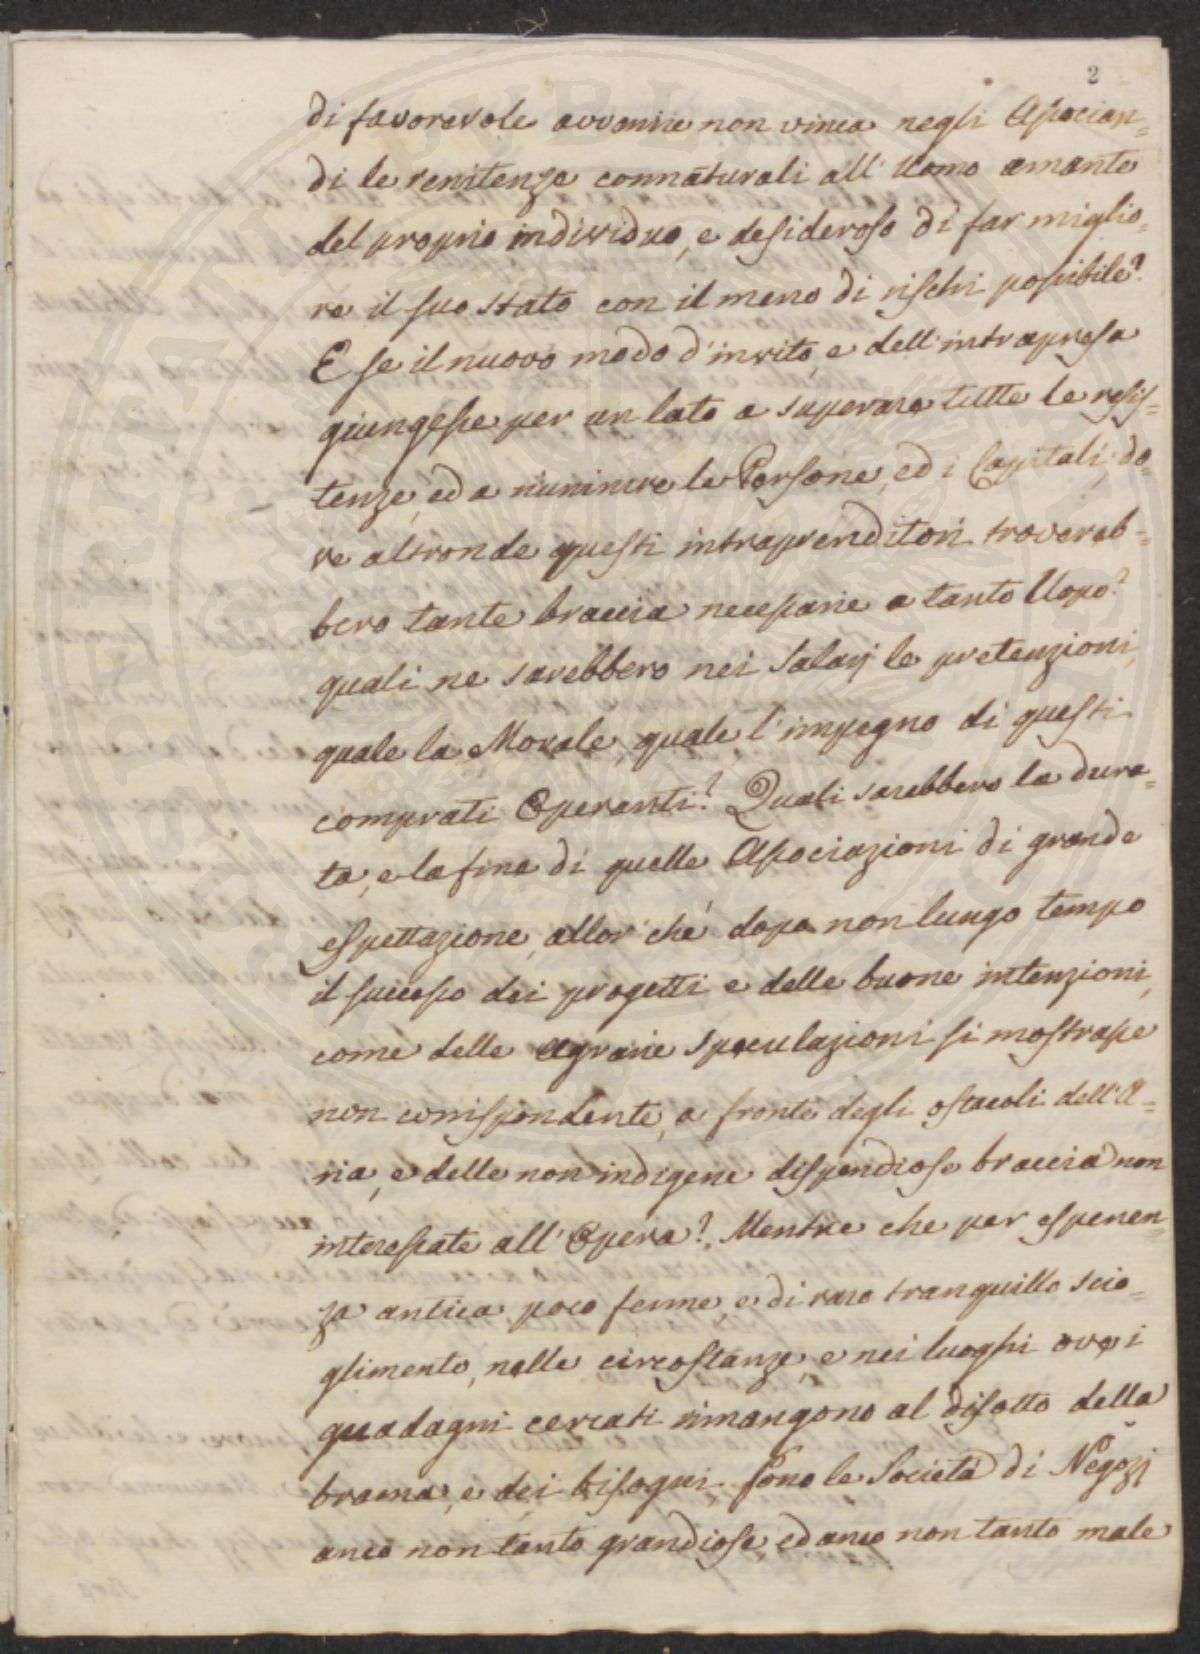 2
di favorevole avvenire non vinca negli Associan=
di le renitenze connaturali all' Uomo amante
del proprio individuo, e desideroso di far miglio=
re il suo stato con il meno di rischi possibile?
E se il nuovo modo d'invito, e dell'intrapresa
giungesse per un lato a superare tutte le resis=
tenze, ed a riunire le Persone, ed i Capitali, do=
ve altronde questi intraprenditori troverab=
bero tante braccia necessarie a tanto Uopo?
quali ne sarebbero nei Salarj le pretenzioni,
quale la Morale, quale l'impegno di questi
comprati Operanti? Quali sarebbero la dura=
ta, e la fine di quelle Associazioni di grande
espettazione, allor ché dopo non lungo tempo
il successo dei progetti e delle buone intenzioni,
come delle agrarie speculazioni si mostrasse
non corrispondente, a fronte degli ostacoli dell'A=
ria, e delle non indigene dispendiose braccia non
interessate all' Opera? Mentre che per esperien=
za antica poco ferme, e di raro tranquillo scio=
glimento, nelle circostanze, e nei luoghi ove i
guadagni cercati rimangono al disotto della
brama, e dei bisogni. sono le Società di Negozj
anco non tanto grandiose, ed anco non tanto male